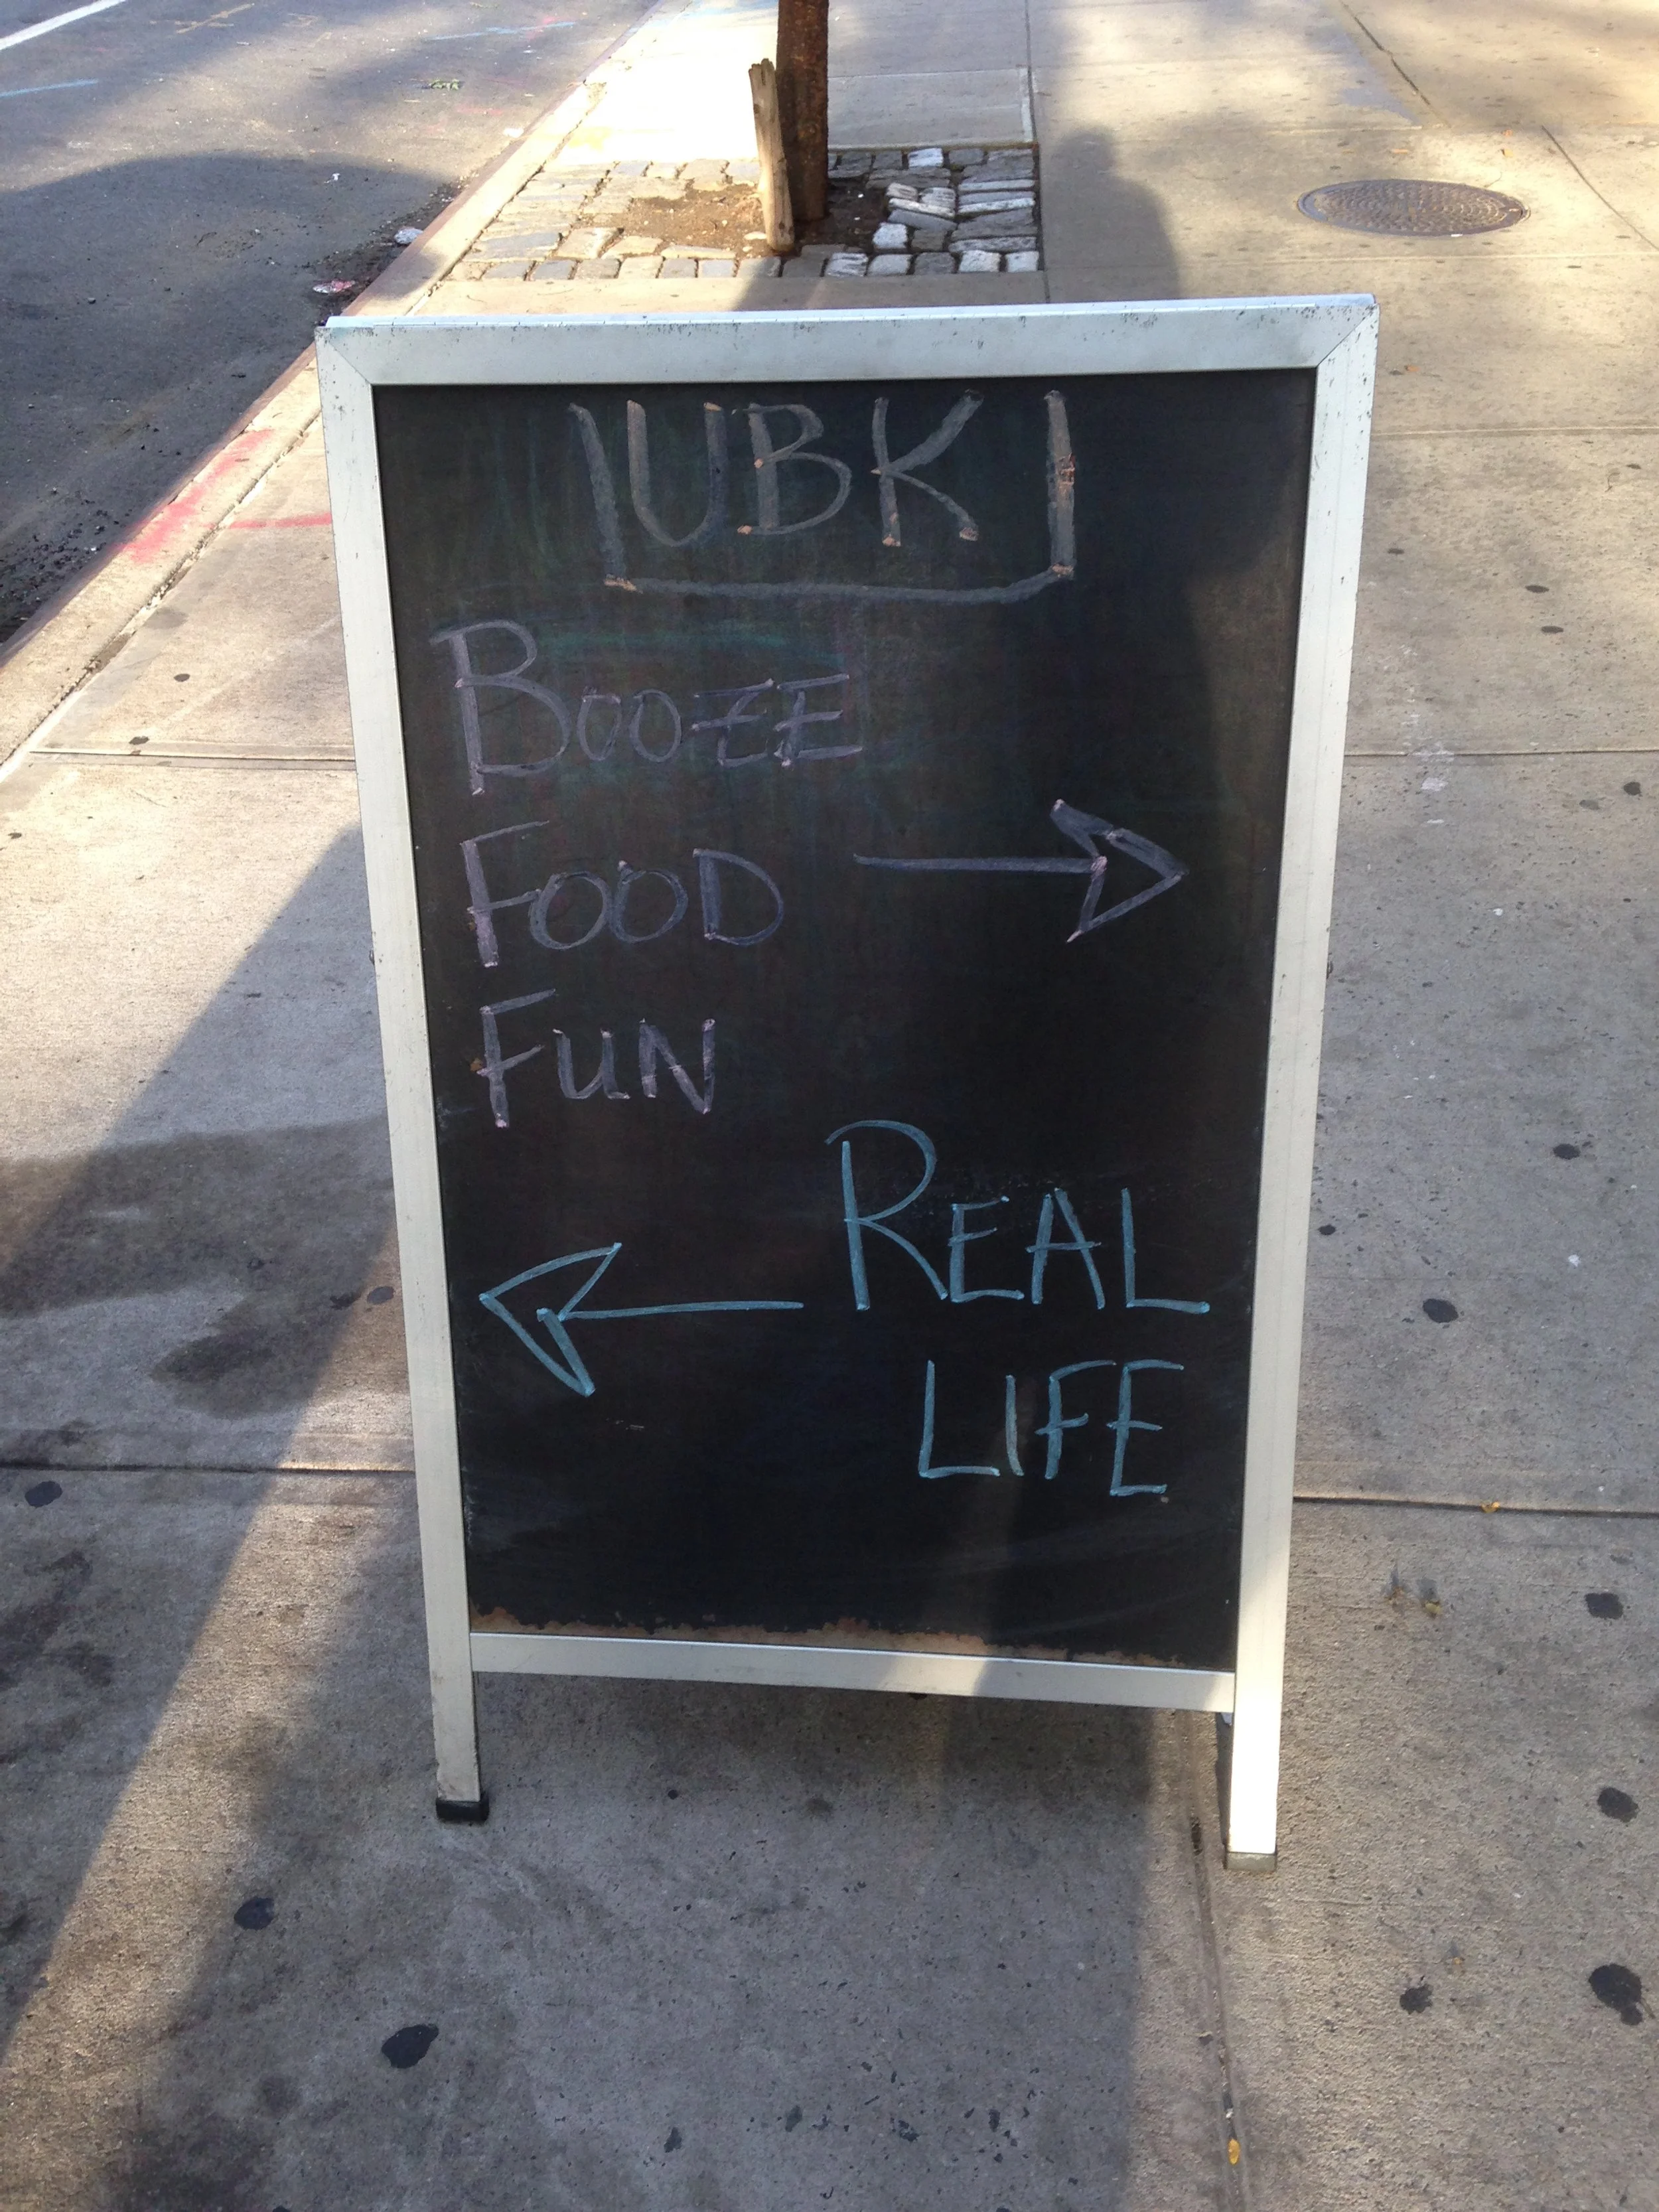 UBK
BOOZE
FOOD
FUN
REAL
LIFE